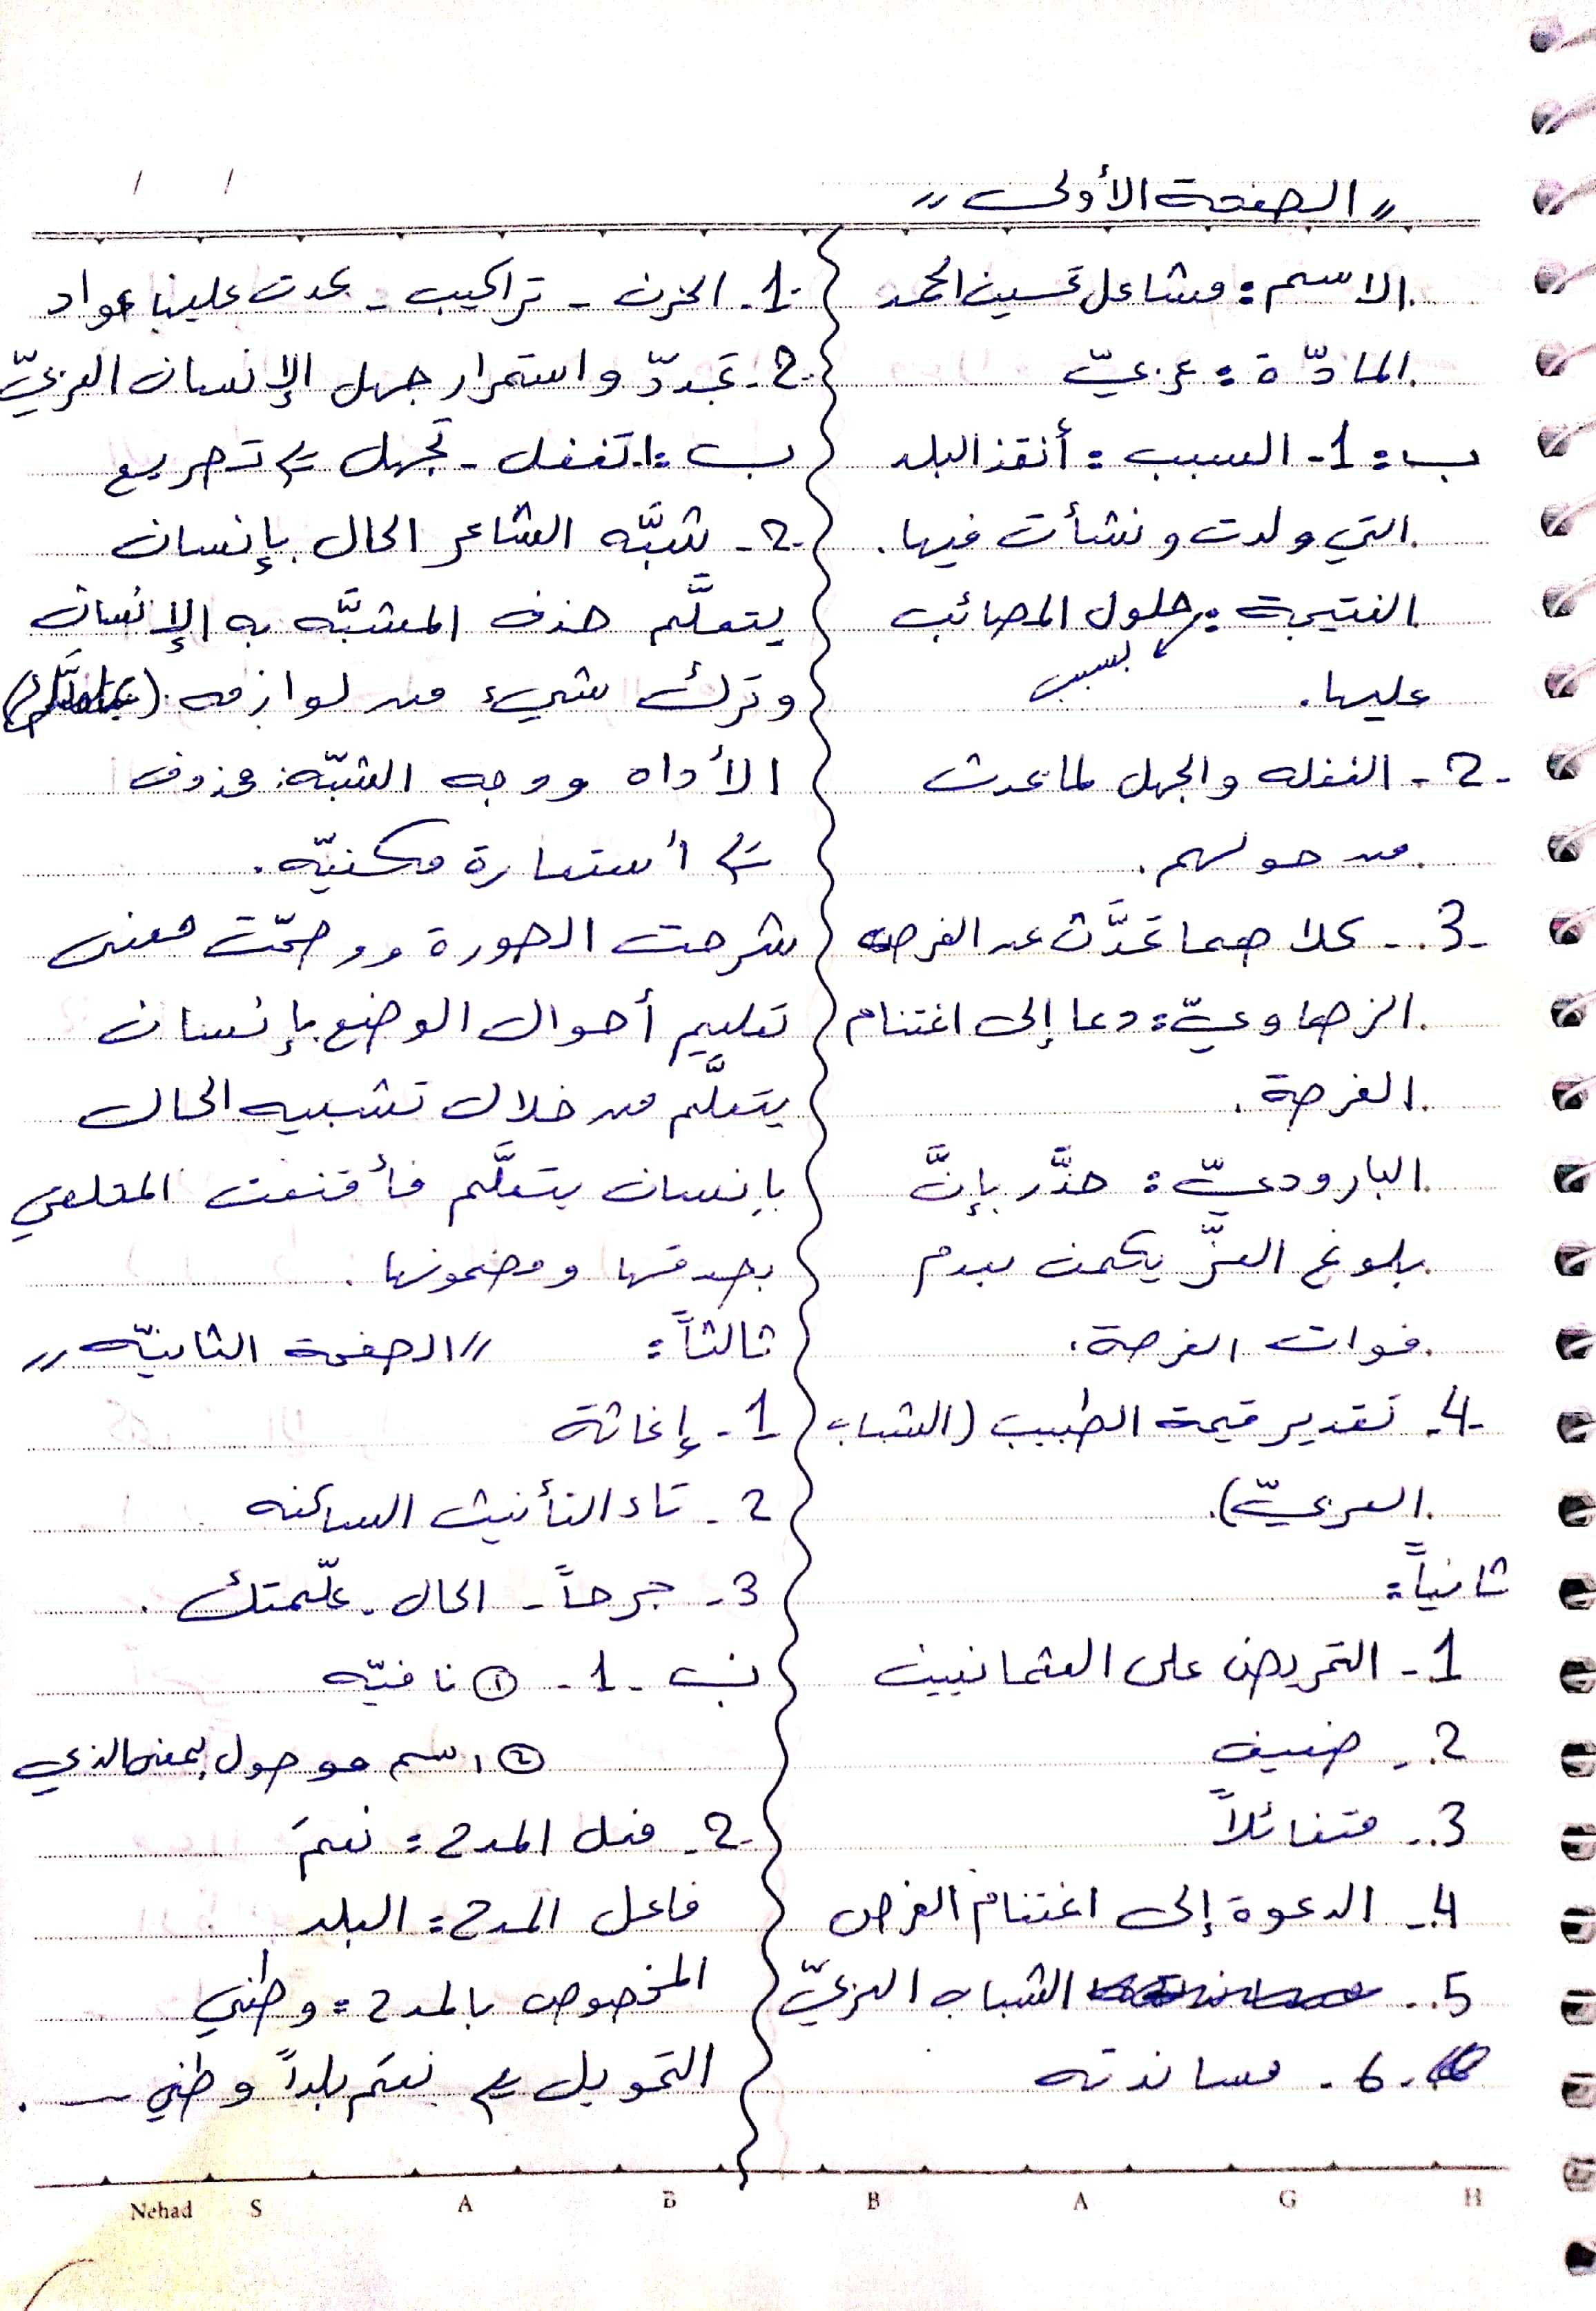 〃 الصفحة الأولى 〃
الاسم: مشاعل تحسين المحمد
المادّة: عربيّ
ب: 1- السبب: أنقذ البلد
التي ولدت ونشأت فيها.
النتيجة: حلول المصائب
بسبب
عليها.
2- الغفله والجهل لما يحدث
من حولهم.
3- كلاهما تحدَّث عن الفرصه
الزهاويّ: دعا إلى اغتنام
الفرصة.
الباروديّ: حذَّر بإنَّ
بلوغ العزّ يكمن بعدم
فوات الفرصة.
4- تقدير قيمة الطبيب (الشباب
العربيّ).
ثانياً:
1- التحريض على العثمانيين
2- ضعيف
3- متفائلاً
4- الدعوة إلى اغتنام الفرص
5- الشباب العربيّ
6- مساندته
1- الحزن - تراكيب - عدت علينا عواد
2- تجددّ واستمرار جهل الإنسان العربيّ
ب: 1- تغفل - تجهل ⇐ تصريع
2- شبَّه الشاعر الحال بإنسان
يتعلَّم حذف المشبَّه به الإنسان
وترك شيء من لوازمه
الأداه ووجه الشبّه: محذوف
⇐ أستعارة مكنيّه.
شرحت الصورة ووضحّت معنى
تعليم أحوال الوضع بإنسان
يتعلَّم من خلال تشبيه الحال
بإنسان يتعلَّم فأقنعت المتلقي
بصدقها ومضمونها.
ثالثاً: 〃 الصفحة الثانيّه 〃
1- إغاثة
2- تاء التأنيث الساكنه
3- جرحاً - الحال - علّمتك.
ب - 1 - ① نافيّه
② اسم موصول بمعنى الذي
2- فعل المدح: نعمَ
فاعل المدح: البلد
المخصوص بالمدح: وطني
التحويل ⇐ نعمَ بلداً وطني.
Nehad S A B B A G H